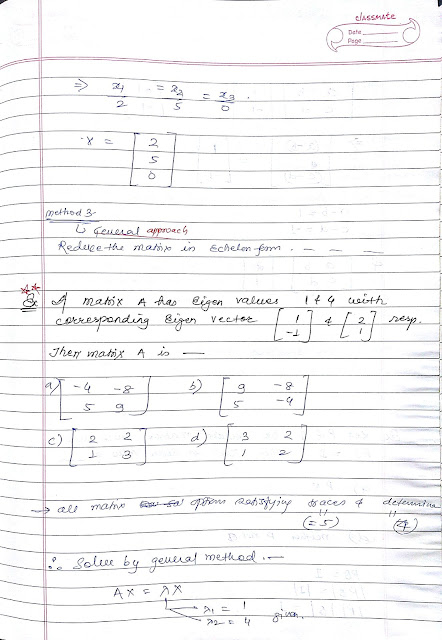 classmate
Date
Page
⇒ x1/2 = x2/5 = x3/0 .
x = [ 2
5
0 ]
Method 3-
↳ General approach
Reduce the matrix in Echelon form . — — —
** Ex A matrix A has Eigen values 1 & 4 with
corresponding Eigen vector [ 1 -1 ] & [ 2 1 ] resp.
Then matrix A is —
a) [ -4 -8
5 9 ] b) [ 9 -8
5 -4 ]
c) [ 2 2
1 3 ] d) [ 3 2
1 2 ]
→ all matrix options satisfying traces & determina
(=5) (4)
∴ Solve by general method . —
AX = λX
λ1 = 1
λ2 = 4 given.